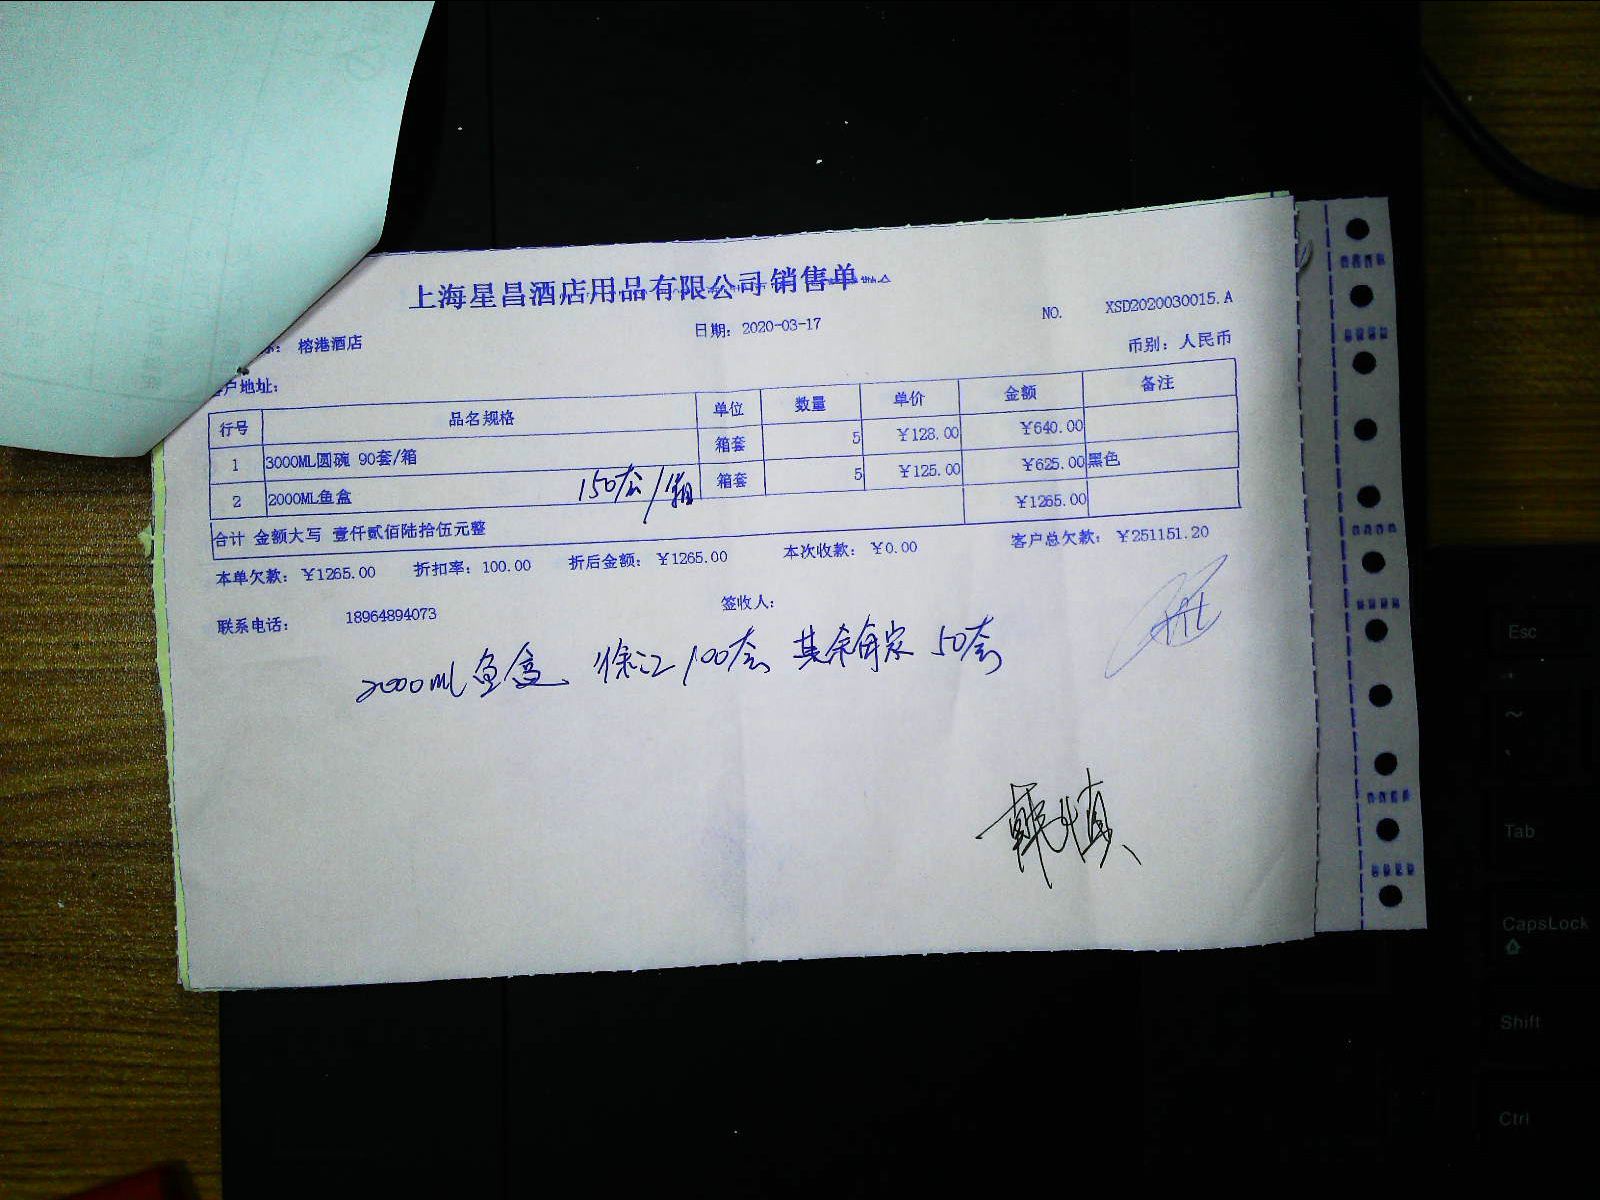 上海星昌酒店用品有限公司销售单
榕港酒店 日期: 2020-03-17 NO. XSD2020030015.A
户地址: 币别: 人民币
行号 品名规格 单位 数量 单价 金额 备注
1 3000ML圆碗 90套/箱 箱套 5 ¥128.00 ¥640.00
2 2000ML鱼盒 150套/箱 箱套 5 ¥125.00 ¥625.00 黑色
合计 金额大写 壹仟贰佰陆拾伍元整 ¥1265.00
本单欠款: ¥1265.00 折扣率: 100.00 折后金额: ¥1265.00 本次收款: ¥0.00 客户总欠款: ¥251151.20
联系电话: 18964894073 签收人:
2000ml鱼盒 徐汇100套 其余每家 50套
Esc
Tab
CapsLock
Shift
Ctrl